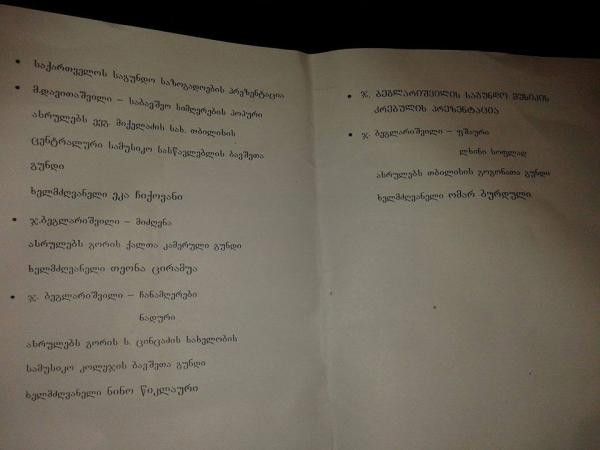 • საქართველოს საგუნდო საზოგადოების პრეზენტაცია
• მ.დავითაშვილი – საბავშვო სიმღერების პოპური
ასრულებს ევგ. მიქელაძის სახ. თბილისის
ცენტრალური სამუსიკო სასწავლებლის ბავშვთა
გუნდი
ხელმძღვანელი ეკა ჩიქოვანი
• ჯ.ბეგლარიშვილი – მიძღვნა
ასრულებს გორის ქალთა კამერული გუნდი
ხელმძღვანელი თეონა ცირამუა
• ჯ. ბეგლარიშვილი – ჩანამღერები
ნადური
ასრულებს გორის ს. ცინცაძის სახელობის
სამუსიკო კოლეჯის ბავშვთა გუნდი
ხელმძღვანელი ნინო წიკლაური
• ჯ. ბეგლარიშვილის საგუნდო მუსიკის
კრებულის პრეზენტაცია
• ჯ. ბეგლარიშვილი – ფშაური
ლხინი სოფლად
ასრულებს თბილისის გოგონათა გუნდი
ხელმძღვანელი ომარ ბურდული